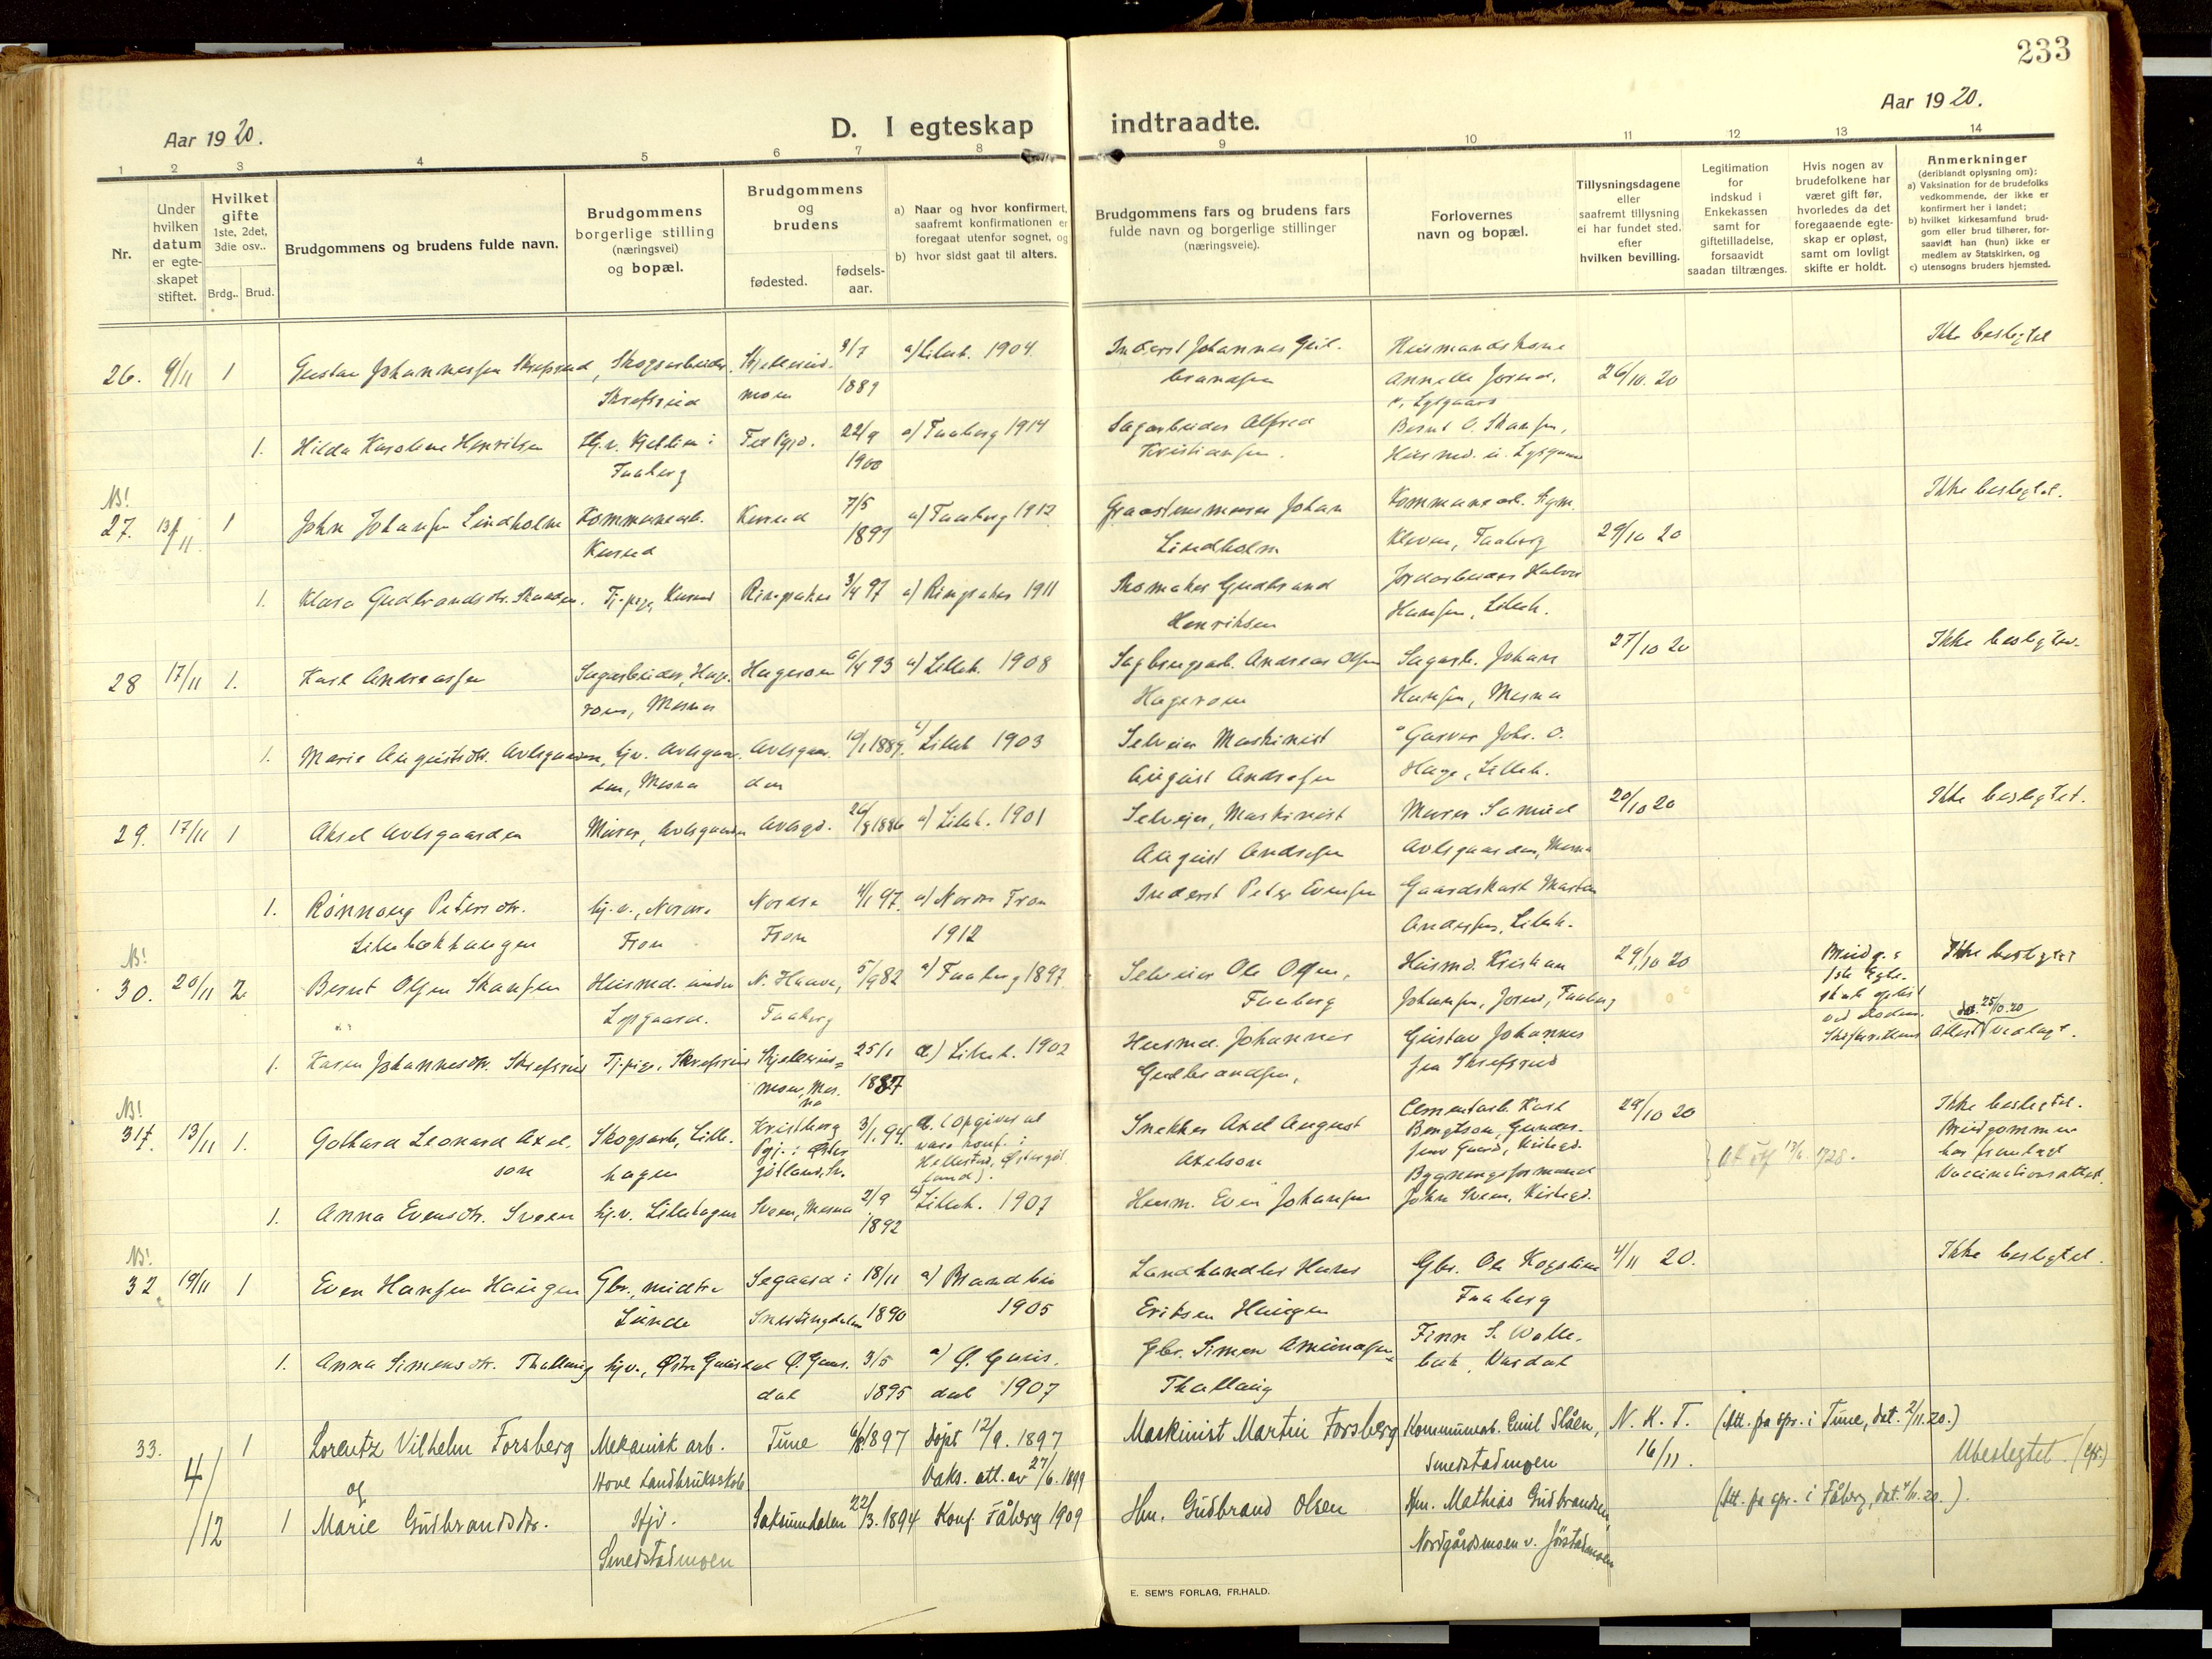 233
Aar 1920.
D. I egteskap indtraadte.
Aar 1920.
1 2 3 4 5 6 7 8 9 10 11 12 13 14
Nr.
Under hvilken datum er egteskapet stiftet.
Hvilket gifte 1ste, 2det, 3die osv..
Brdg.. Brud.
Brudgommens og brudens fulde navn.
Brudgommens borgerlige stilling (næringsvei) og bopæl.
Brudgommens og brudens
fødested. fødsels-aar.
a) Naar og hvor konfirmert, saafremt konfirmationen er foregaat utenfor sognet, og
b) hvor sidst gaat til alters.
Brudgommens fars og brudens fars fulde navn og borgerlige stillinger (næringsveie).
Forlovernes navn og bopæl.
Tillysningsdagene eller saafremt tillysning ei har fundet sted, efter hvilken bevilling.
Legitimation for indskud i Enkekassen samt for giftetilladelse, forsaavidt saadan tiltrænges.
Hvis nogen av brudefolkene har været gift før, hvorledes da det foregaaende egteskap er opløst, samt om lovligt skifte er holdt.
Anmerkninger (deriblandt oplysning om):
a) Vaksination for de brudefolks vedkommende, der ikke er konfirmert her i landet;
b) hvilket kirkesamfund brudgom eller brud tilhører, forsaavidt han (hun) ikke er medlem av Statskirken, og
c) utensogns bruders hjemsted.
26. 9/11 1 Gustav Johannessen Skrefsrud, Skogsarbeider, Skjellerud- 3/7 a) Lilleh. 1904. Inderst Johannes Gul- Husmandskone Ikke beslegtet
Skrefsrud moen 1889 brandsen Annette Jorud, 26/10. 20
v. Lysgaard
1. Hilda Karoline Henriksen Hj.v. i 22/9 a) Faaberg 1914 Sagarbeider Alfred Bernt O. Skansen,
Faaberg 1900 Kristiansen. Husmd. u. Lysgaard
N.B!
27. 13/11 1 John Johansen Lindholm Kommunearb. Kurud 7/5 a) Faaberg 1912 Graastensmurer Johan Kommunearb. Ikke beslegtet.
Kurud 1897 Lindholm Kleven, Faaberg 29/10 20
1. Klara Gudbrandsdtr. Tj.pige, Kurud Ringsaker 3/4 97 a) Ringsaker 1911 Skomaker Gudbrand Jordarbeider Halvor
Henriksen Hansen, Lilleh.
28 17/11 1. Karl Andreassen Sagarbeider, Hage- Hageroen 6/4 93 a) Lilleh. 1908 Sagbrugsarb. Andreas Olsen Sagarb. Johan 27/10 20 Ikke beslegtet.
roen, Mesna Hageroen Hansen, Mesna
1. Marie Augustsdtr. Avlsgaarden, hj.v. Avlsgaar- Avlsgaar- 10/1 1889. a) Lilleh 1903 Selveier Maskinist Garver Johs. O.
den, Mesna den August Andersen Hage, Lilleh.
29. 17/11 1 Aksel Avlsgaarden Murer, Avlsgaarden Avlsgd. 26/8 1886 a) Lilleh. 1901 Selveier, Maskinist Murer Samuel 20/10 20 Ikke beslegtet.
August Andersen Avlsgaarden, Mesna
1. Rønnaug Petersdtr. hj.v., Nordre Nordre 4/1 97. a) Nordre Fron Inderst Peter Evensen Gaardskarl Martin
Lillebækhaugen Fron Fron 1912 Andersen, Lilleh.
N.B!
30. 20/11 2 Bernt Olsen Skansen Husmd. under N. Haave, 5/9 82 a) Faaberg 1897. Selveier Ole Olsen, Husmd. Kristian 29/10 20 Brudg.s Ikke beslegtet
Lysgaard. Faaberg Faaberg Johansen, Jorud, Faaberg 1ste egte-
skab opløst
ved døden. dat. 25/10.20
Skifterettens Attest vedlagt.
1. Karen Johannesdtr. Skrefsrud Tj.pige, Skrefsrud Skjellerud- 25/1 a) Lilleh. 1902 Husmd. Johannes Gustav Johannes-
moen, Mes- 1887 Gudbrandsen, sen Skrefsrud
na
N.B!
31. 13/11 1. Gothard Leonard Axel- Skogsarb., Lille- Kristberg 3/1. 94. a. (Opgives at Snekker Axel August Cementarb. Karl 29/10 20 Ikke beslegtet.
son hagen Pgj. i Øster være konf. i Axelson Bengtson, Gunder- Brudgommen
götland, Sv. Hellestad, Östergöt- sens Gaard, Kirkegd. har fremlagt
land). Bygningsformand Vaccinationsattest.
1. Anna Evensdtr. Sveen hj.v. Lillehagen Sveen, Mesna 2/9 a) Lilleh. 1907 Husm. Even Johansen John Sveen, Kirkegd.
1892
N.B!
32. 19/11 1 Even Hansen Haugen Gbr., midtre Segaard i 18/11 a) Brandbu Landhandler Hans Gbr. Ole 4/11 20. Ikke beslegtet.
Lunde Snertingdalen 1890 1905 Eriksen Haugen Faaberg
1. Anna Simensdtr. Thallaug hj.v., Østre Gausdal Ø. Gaus- 3/5 a) Ø. Gaus- Gbr. Simen Amundsen Finn S. Wolle-
dal 1895 dal 1907 Thallaug bæk, Vardal
33. 4/12 1 Lorentz Vilhelm Forsberg Mekanisk arb. Tune 6/8 1897 Døpt 12/9. 1897 Maskinist Martin Forsberg Kommunearb. Emil Slåen, N. K. T. (Att. fra spr. i Tune, dat. 2/11.20.)
og Hove Landbruksskole Vaks. att. av 27/6. 1899 Smedstadmoen 16/11. Ubeslegtet.
1 Marie Gudbrandsdtr. Hjv. Saksumdalen 22/3. 1894 Konf. Fåberg 1909 Hm. Gudbrand Olsen Hm. Mathias Gudbrandsen, (Att. fra spr. i Fåberg, dat. 4/11.20.)
Smedstadmoen Nordgårdsmoen v. Jørstadmoen
E. SEM'S FORLAG, FR.HALD.